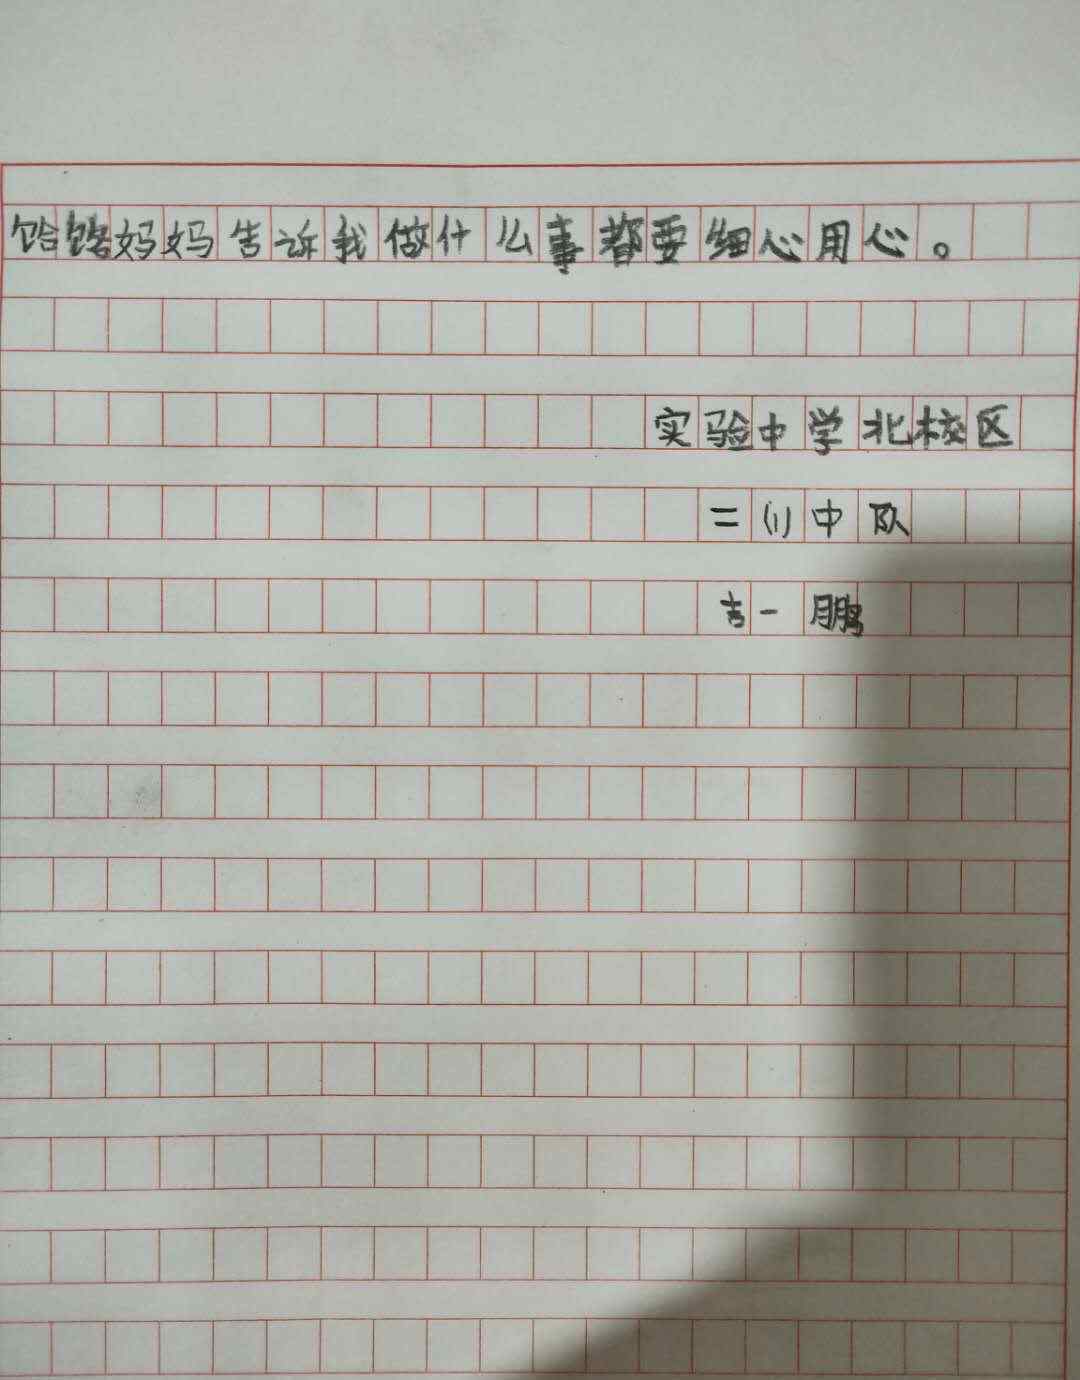 饸饹妈妈告诉我做什么事都要细心用心。
实验中学北校区
二(1)中队
吉一鹏